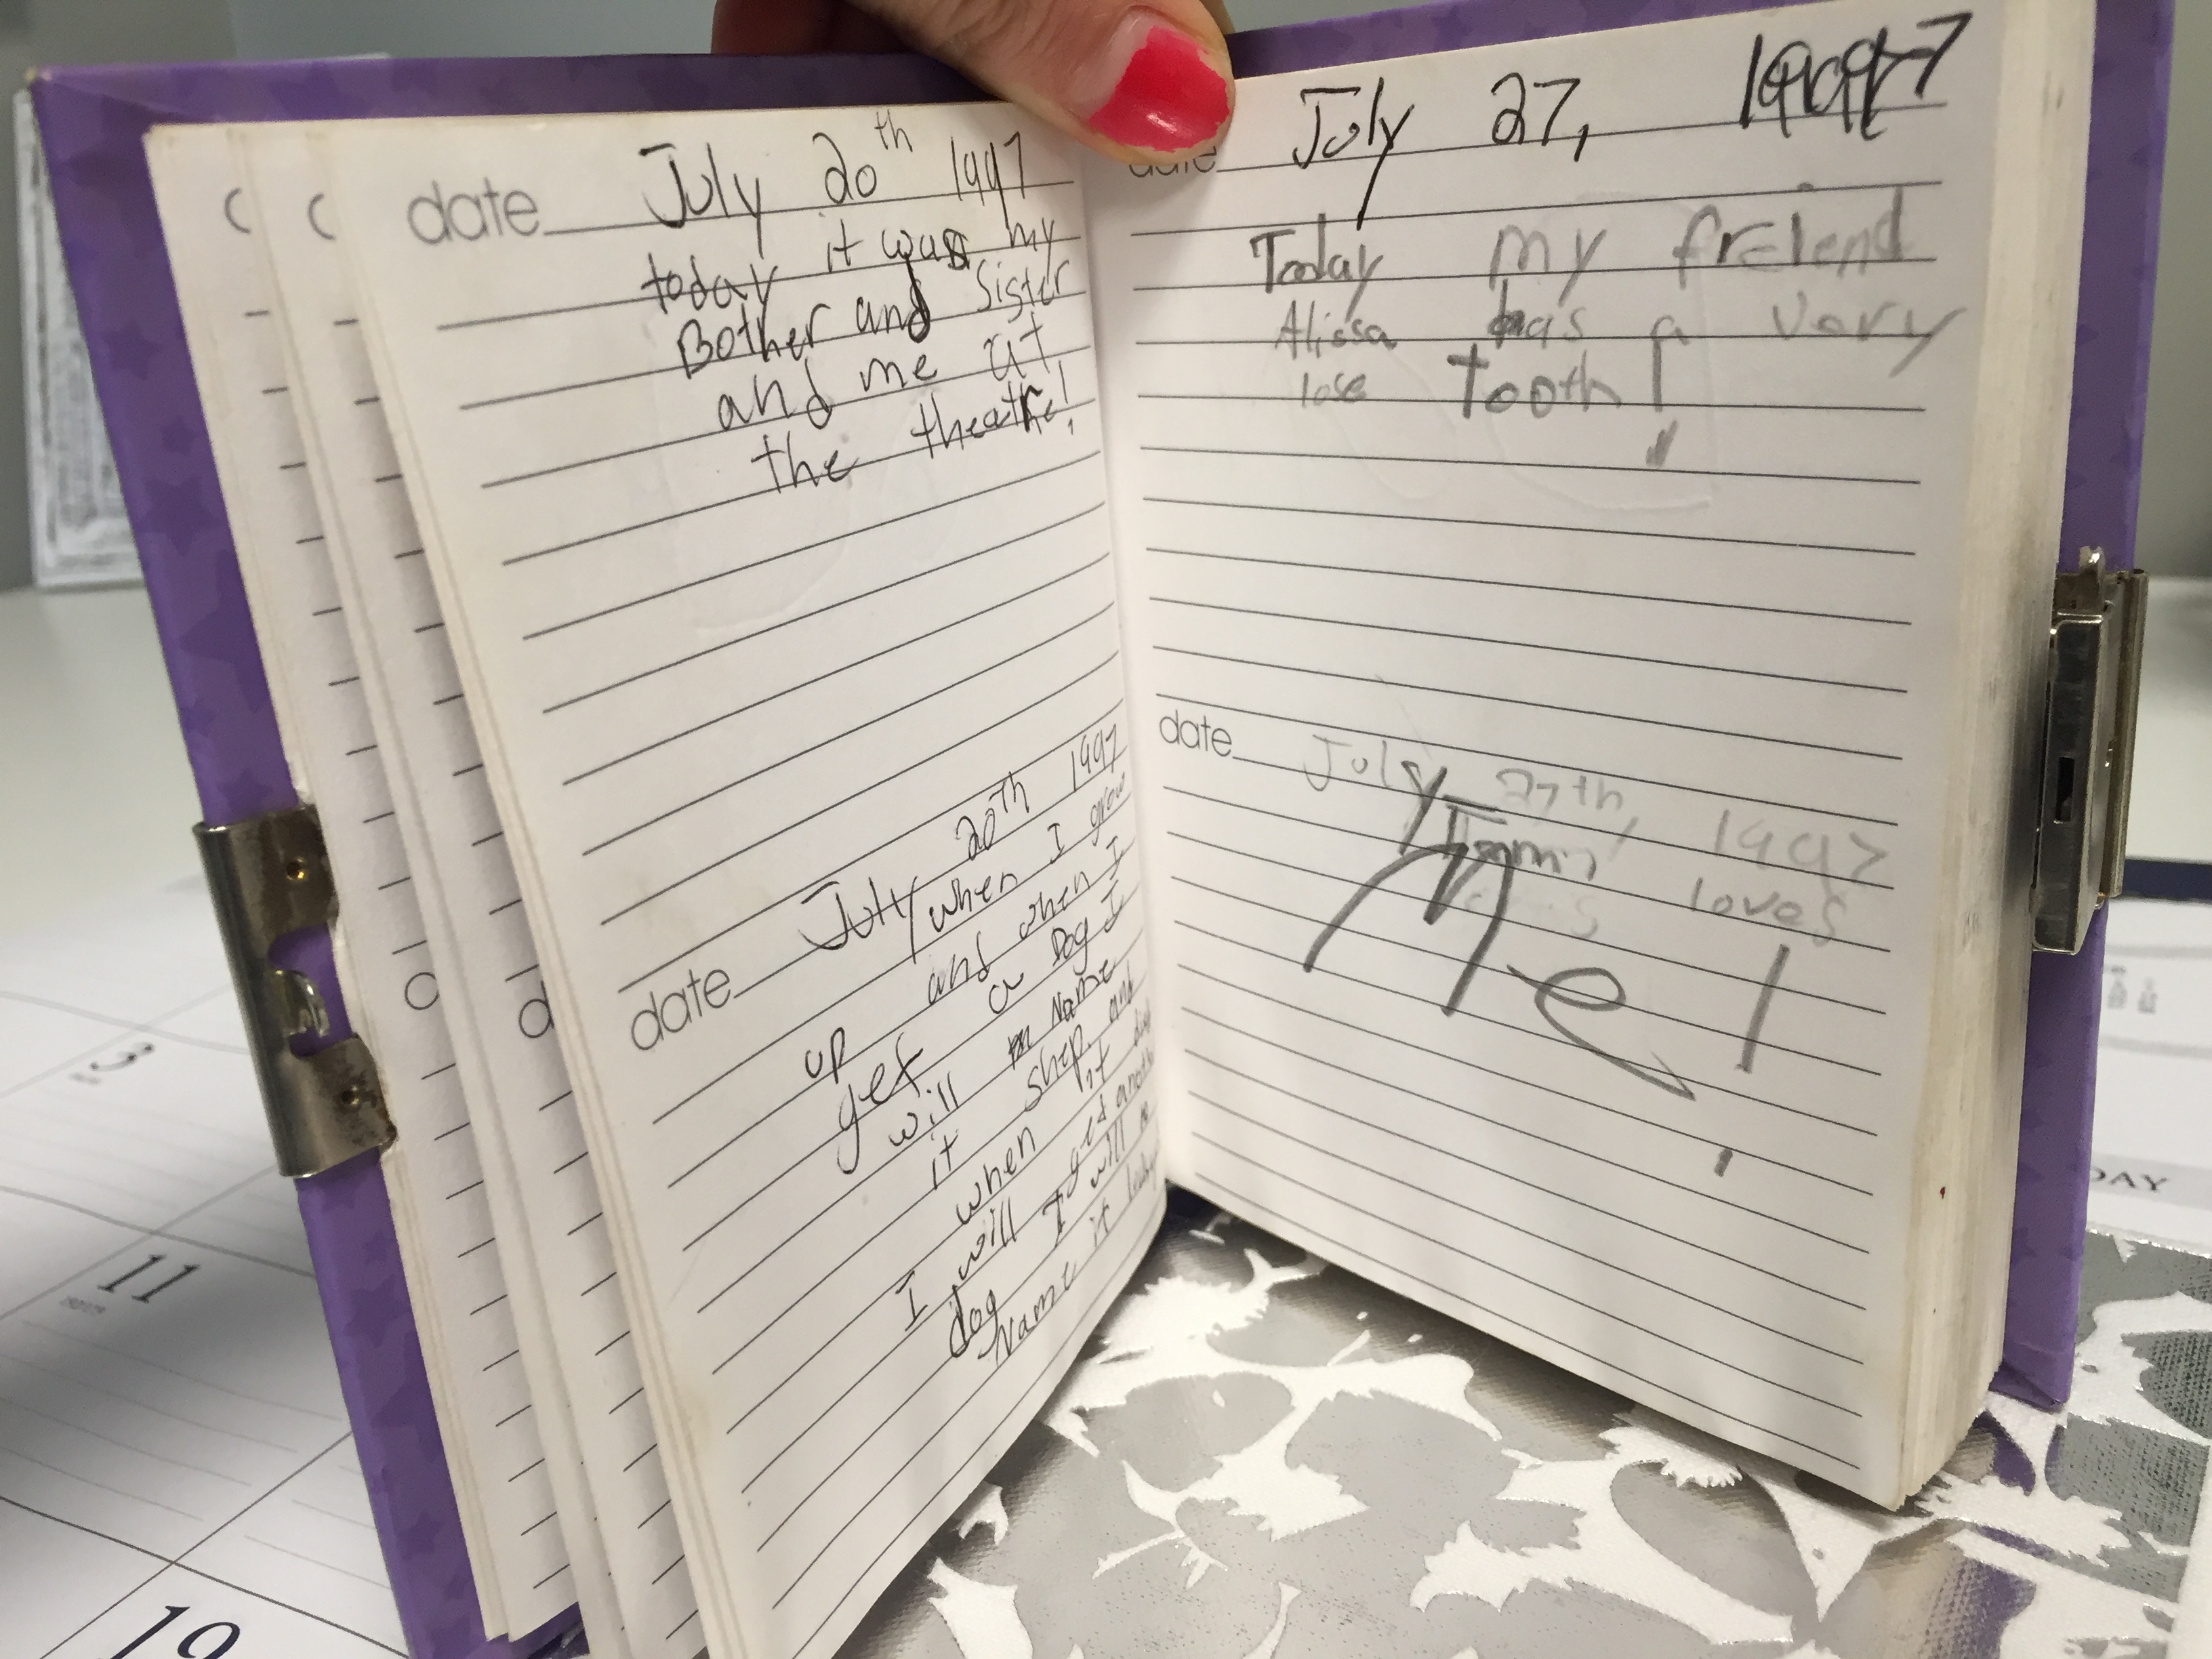 date July 20th 1997
today it was my
Bother and Sister
and me at
the theatre!
date July 20th 1997
when I grow
up and when I
get a Dog I
will Name
it shep. and
when it dies
I will get another
dog I will
Name it
date July 27, 1997
Today my freiend
Alissa has a very
lose Tooth!
date July 27th, 1997
loves
Me!
3
11
19
DAY